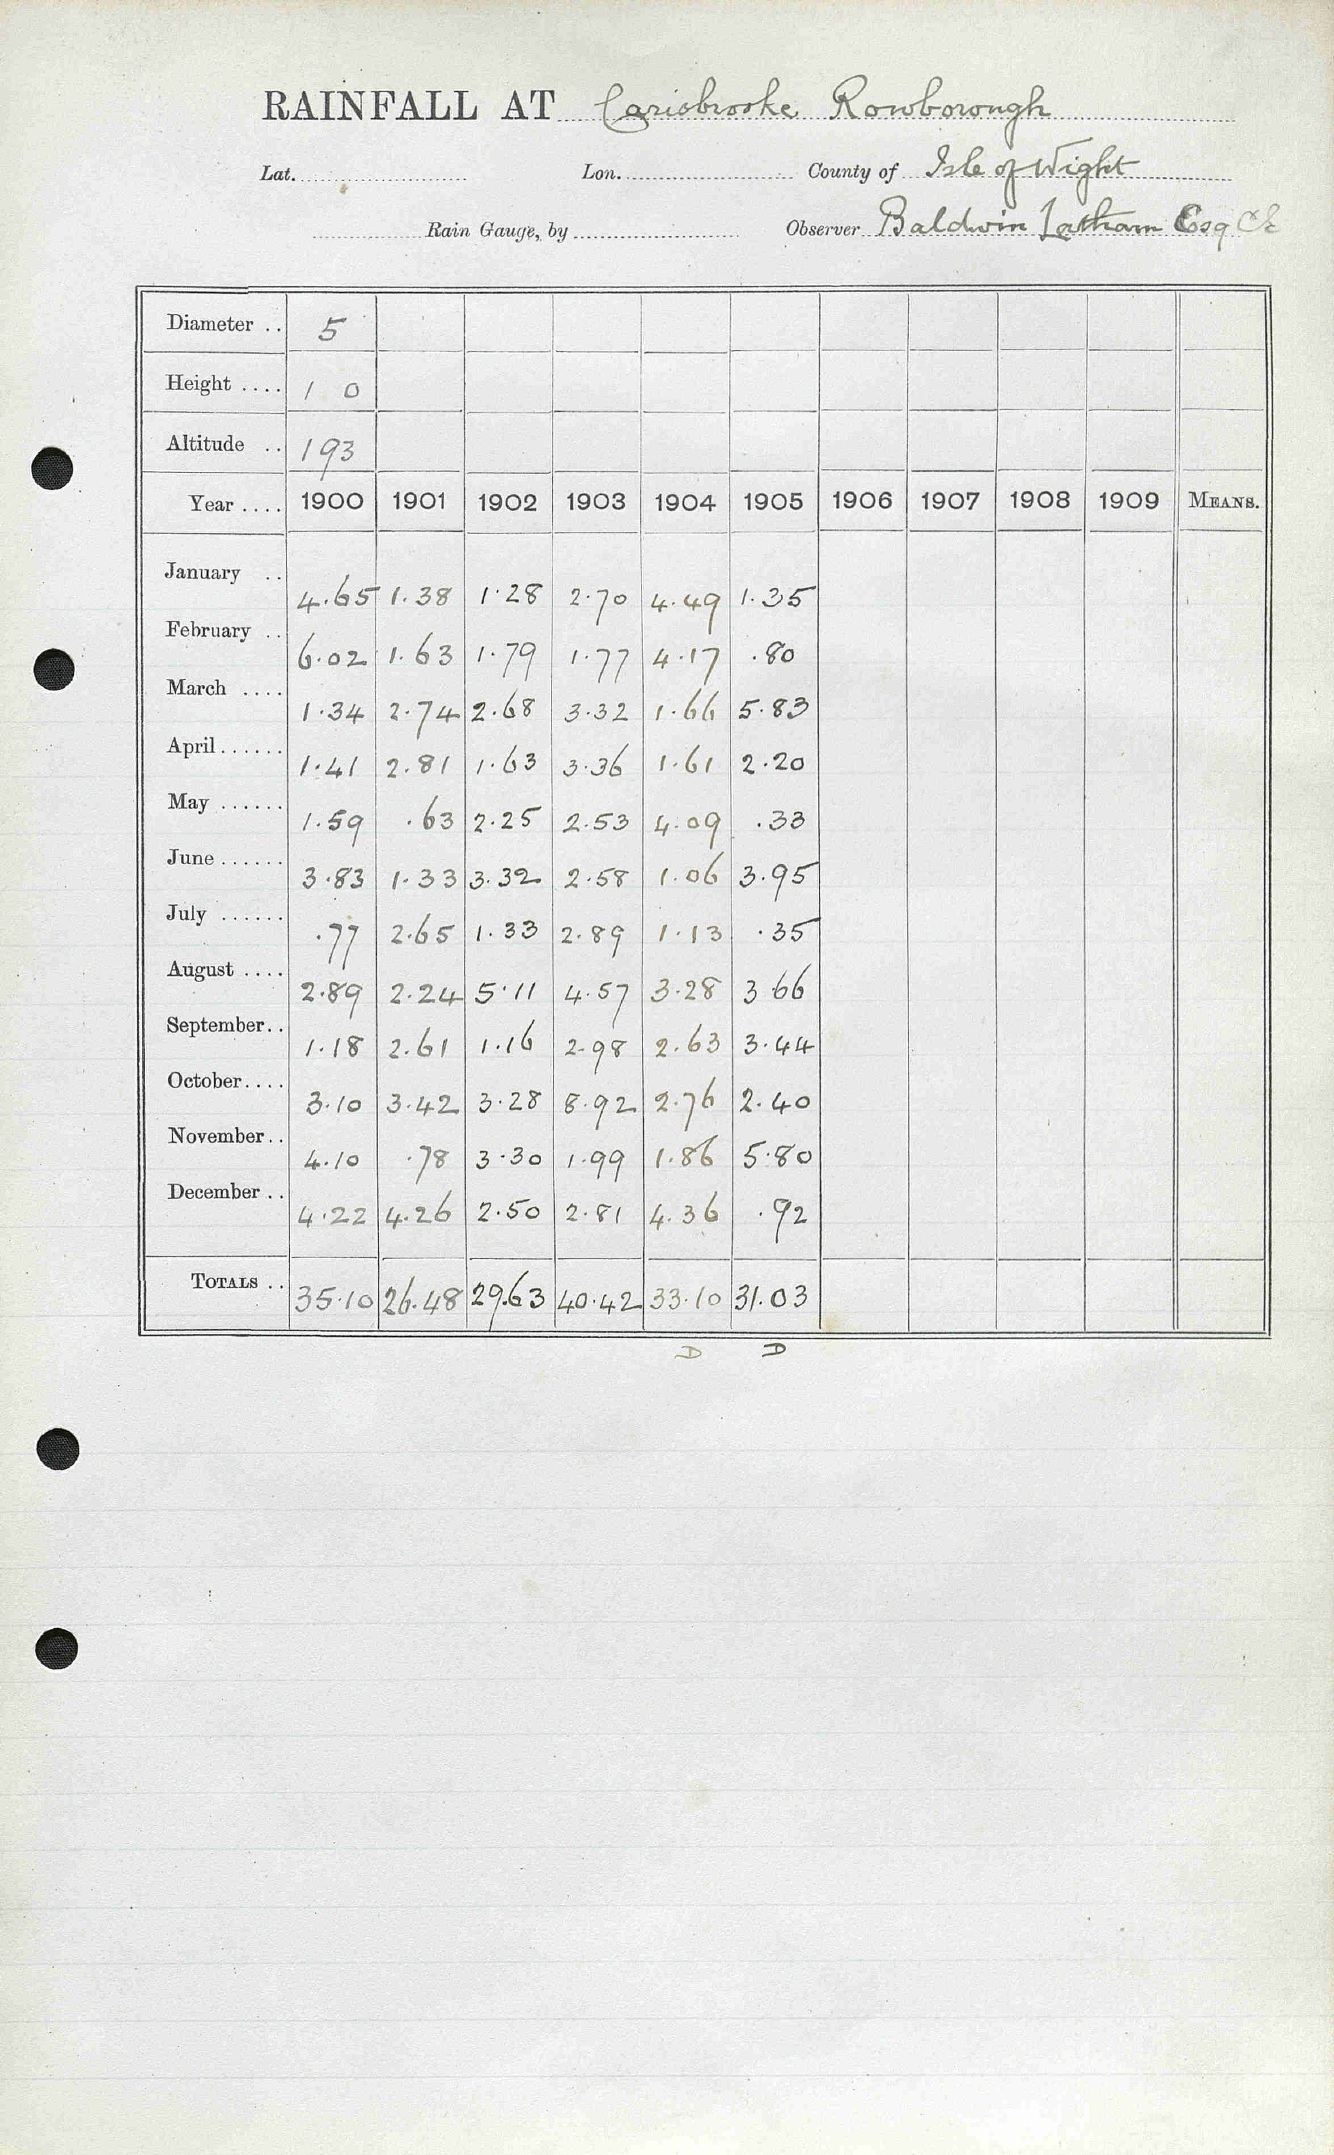 RAINFALL AT Carisbrooke Rowborough
Lat. Lon. County of Isle of Wight
Rain Gauge, by Observer Baldwin Latham Esq CE
Diameter .. 5
Height .... 1 0
Altitude .. 193
Year .... 1900 1901 1902 1903 1904 1905 1906 1907 1908 1909 MEANS.
January .. 4.65 1.38 1.28 2.70 4.49 1.35
February .. 6.02 1.63 1.79 1.77 4.17 .80
March .... 1.34 2.74 2.68 3.32 1.66 5.83
April ...... 1.41 2.81 1.63 3.36 1.61 2.20
May ...... 1.59 .63 2.25 2.53 4.09 .33
June ...... 3.83 1.33 3.32 2.58 1.06 3.95
July ...... .77 2.65 1.33 2.89 1.13 .35
August .... 2.89 2.24 5.11 4.57 3.28 3.66
September.. 1.18 2.61 1.16 2.98 2.63 3.44
October.... 3.10 3.42 3.28 8.92 2.76 2.40
November.. 4.10 .78 3.30 1.99 1.86 5.80
December .. 4.22 4.26 2.50 2.81 4.36 .92
TOTALS .. 35.10 26.48 29.63 40.42 33.10 31.03
D D